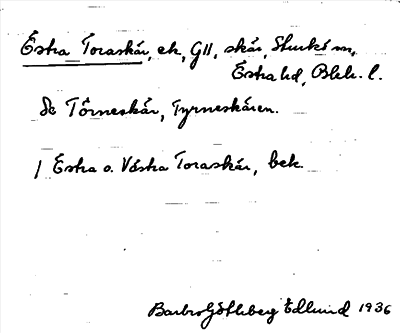 Östra Toraskär, ek, GII, skär, Sturkö sn,
Östra hd, Blek. l.
Se Törneskär, Tyrneskären.
1 Östra o. Västra Toraskär, bek.
Barbro Göthberg Edlund 1936